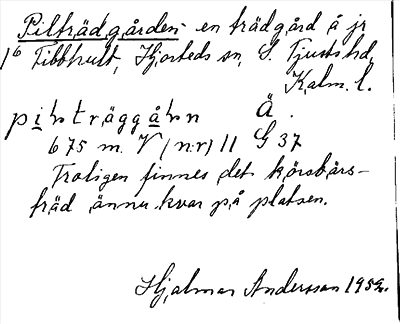 Pilträdgården en trädgård å jr
1⁶ Tibbhult, Hjorteds sn, S. Tjusts hd,
Kalm. l.
piltrággån Ä.
675 m. V (n:r) 11 G 37
Troligen finnes det körsbärs-
träd ännu kvar på platsen.
Hjalmar Andersson 1959.